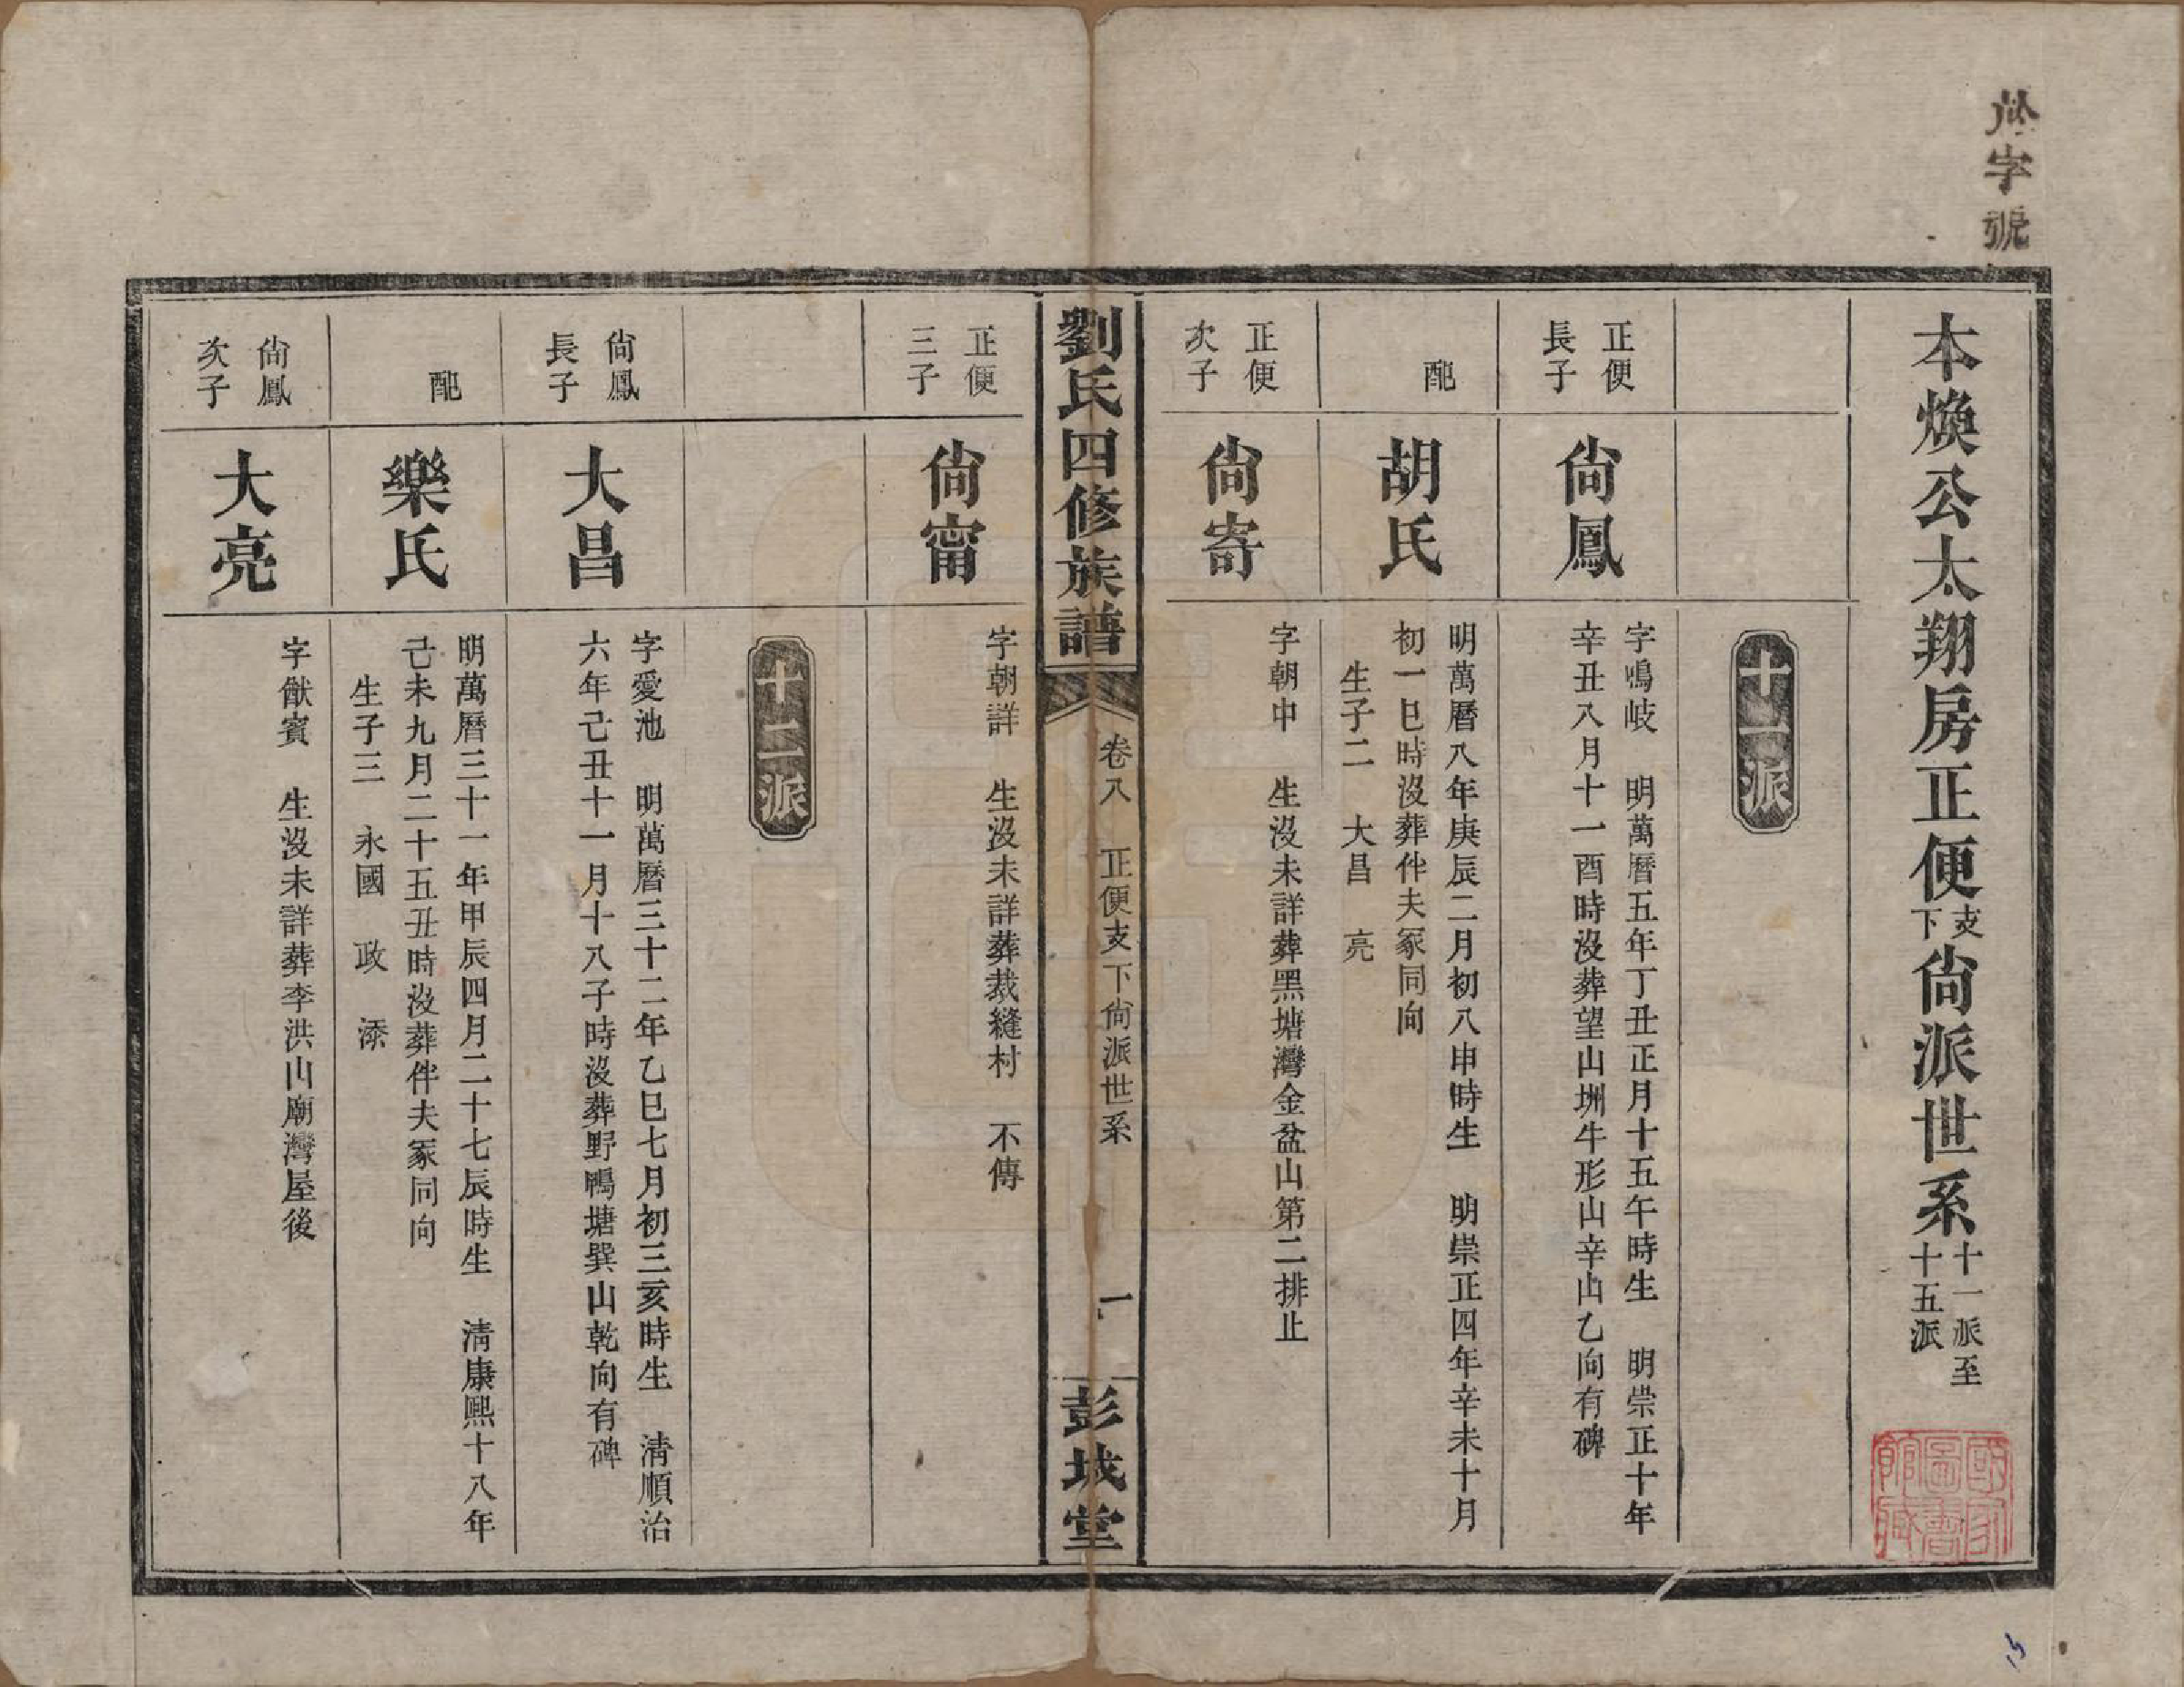 字號
本煥公太翔房正便支下尙派世系十一派至十五派
十一派
正便長子
尙鳳
字鳴岐　明萬曆五年丁丑正月十五午時生　明崇正十年
辛丑八月十一酉時沒葬望山㘭牛形山辛山乙向有碑
配
胡氏
明萬曆八年庚辰二月初八申時生　明崇正四年辛未十月
初一巳時沒葬伴夫冢同向
生子二　大昌　亮
正便次子
尙寄
字朝中　生沒未詳葬黑塘灣金盆山第二排止
劉氏四修族譜
卷八　正便支下尙派世系
一
彭城堂
正便三子
尙甯
字朝詳　生沒未詳葬裁縫村　不傳
十二派
尙鳳長子
大昌
字愛池　明萬曆三十二年乙巳七月初三亥時生　淸順治
六年己丑十一月十八子時沒葬野鴨塘巽山乾向有碑
配
樂氏
明萬曆三十一年甲辰四月二十七辰時生　淸康熙十八年
己未九月二十五丑時沒葬伴夫冢同向
生子三　永國　政　添
尙鳳次子
大亮
字猷賓　生沒未詳葬李洪山廟灣屋後
國家圖書館藏